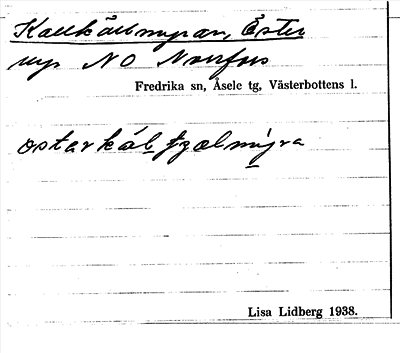 Kallkällmyran, Öster
myr NO Norrfors
Fredrika sn, Åsele tg, Västerbottens l.
ostarkálţţælmýra
Lisa Lidberg 1938.